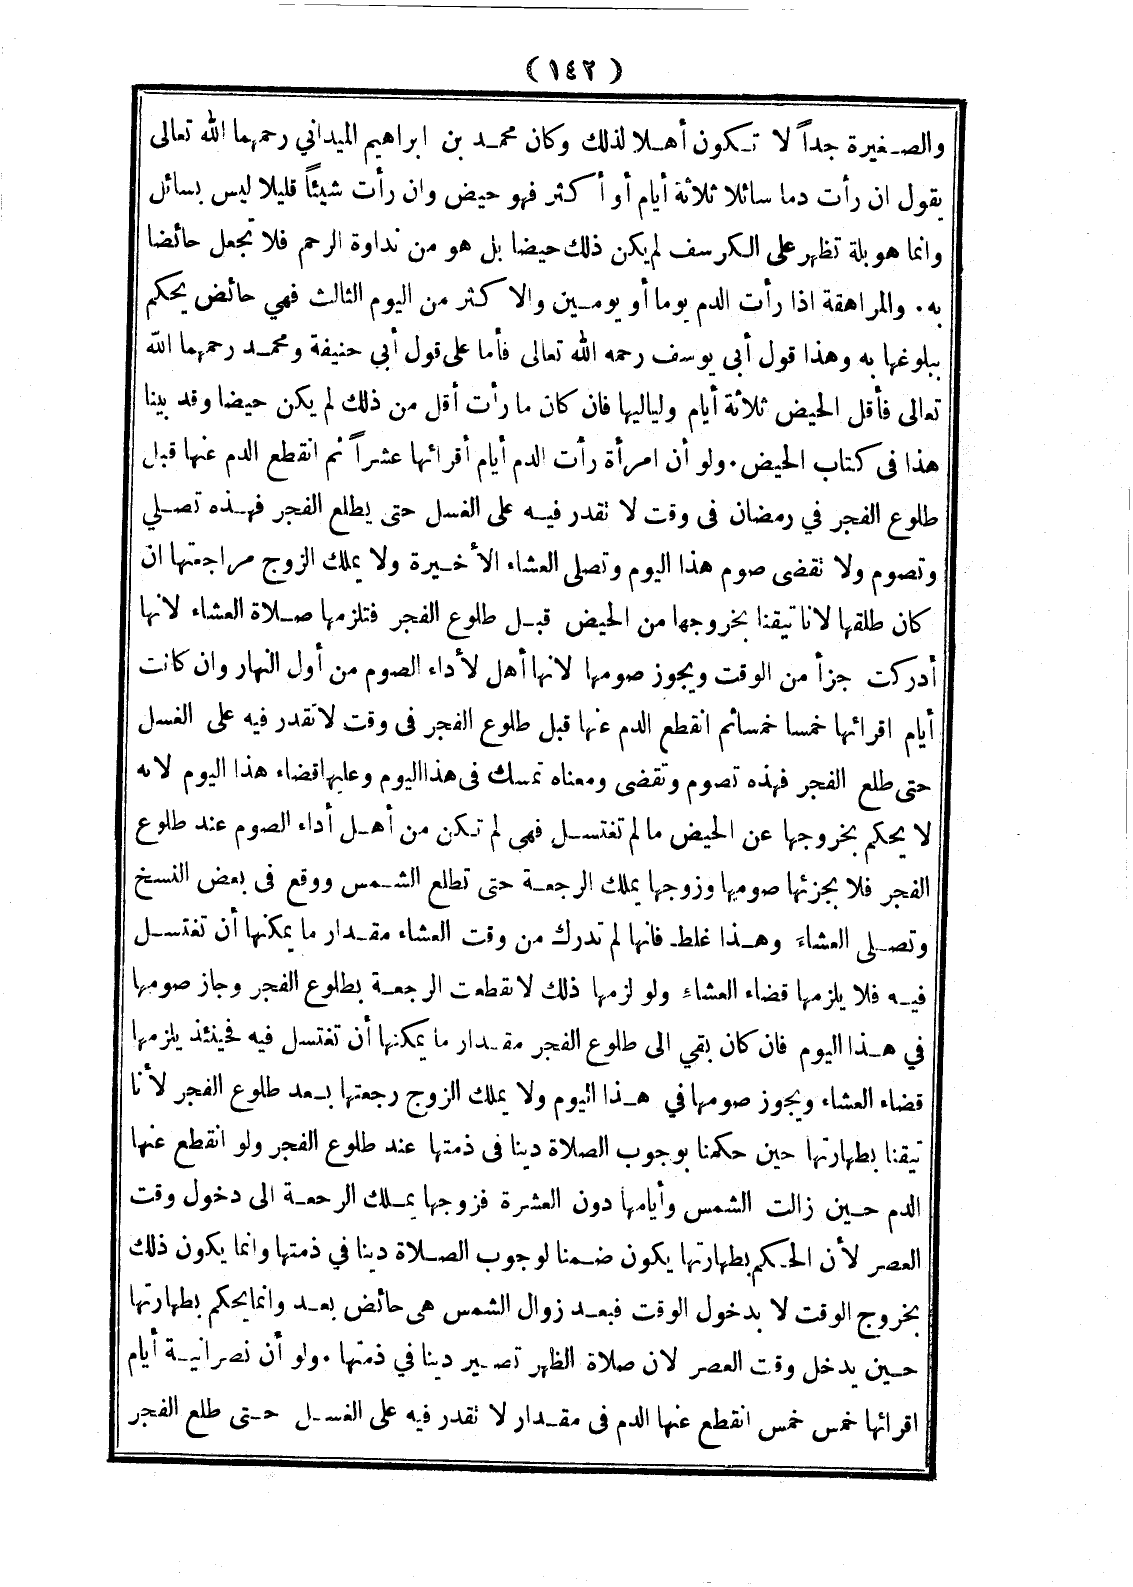 (١٤٢)
والصغيرة جداً لا تكون أهلا لذلك وكان محمد بن ابراهيم الميداني رحمهما الله تعالى
يقول ان رأت دما سائلا ثلاثة أيام أو أكثر فهو حيض وان رأت شيئاً قليلا ليس بسائل
وانما هو بلة تظهر على الكرسف لم يكن ذلك حيضا بل هو من نداوة الرحم فلا تجعل حائضا
به . والمراهقة اذا رأت الدم يوما أو يومين والاكثر من اليوم الثالث فهي حائض يحكم
ببلوغها به وهذا قول أبى يوسف رحمه الله تعالى فأما على قول أبي حنيفة ومحمد رحمهما الله
تعالى فأقل الحيض ثلاثة أيام ولياليها فان كان ما رأت أقل من ذلك لم يكن حيضا وقد بينا
هذا فى كتاب الحيض . ولو أن امرأة رأت الدم أيام أقرائها عشراً ثم انقطع الدم عنها قبل
طلوع الفجر في رمضان فى وقت لا تقدر فيه على الغسل حتى يطلع الفجر فهذه تصلي
وتصوم ولا تقضى صوم هذا اليوم وتصلى العشاء الأخيرة ولا يملك الزوج مراجعتها ان
كان طلقها لانا تيقنا بخروجها من الحيض قبل طلوع الفجر فتلزمها صلاة العشاء لانها
أدركت جزأ من الوقت ويجوز صومها لانها أهل لأداء الصوم من أول النهار وان كانت
أيام اقرائها خمسا خمسا ثم انقطع الدم عنها قبل طلوع الفجر فى وقت لا تقدر فيه على الغسل
حتى طلع الفجر فهذه تصوم وتقضى ومعناه تمسك فى هذا اليوم وعليها قضاء هذا اليوم لانه
لا يحكم بخروجها عن الحيض مالم تغتسل فهى لم تكن من أهل أداء الصوم عند طلوع
الفجر فلا يجزئها صومها وزوجها يملك الرجعة حتى تطلع الشمس ووقع فى بعض النسخ
وتصلى العشاء وهذا غلط فانها لم تدرك من وقت العشاء مقدار ما يمكنها أن تغتسل
فيه فلا يلزمها قضاء العشاء ولو لزمها ذلك لانقطعت الرجعة بطلوع الفجر وجاز صومها
في هذا اليوم فان كان بقي الى طلوع الفجر مقدار ما يمكنها أن تغتسل فيه فحينئذ يلزمها
قضاء العشاء ويجوز صومها في هذا اليوم ولا يملك الزوج رجعتها بعد طلوع الفجر لأنا
تيقنا بطهارتها حين حكمنا بوجوب الصلاة دينا فى ذمتها عند طلوع الفجر ولو انقطع عنها
الدم حين زالت الشمس وأيامها دون العشرة فزوجها يملك الرجعة الى دخول وقت
العصر لأن الحكم بطهارتها يكون ضمنا لوجوب الصلاة دينا في ذمتها وانما يكون ذلك
بخروج الوقت لا بدخول الوقت فبعد زوال الشمس هى حائض بعد وانما يحكم بطهارتها
حين يدخل وقت العصر لان صلاة الظهر تصير دينا في ذمتها . ولو أن نصرانية أيام
اقرائها خمس خمس انقطع عنها الدم فى مقدار لا تقدر فيه على الغسل حتى طلع الفجر